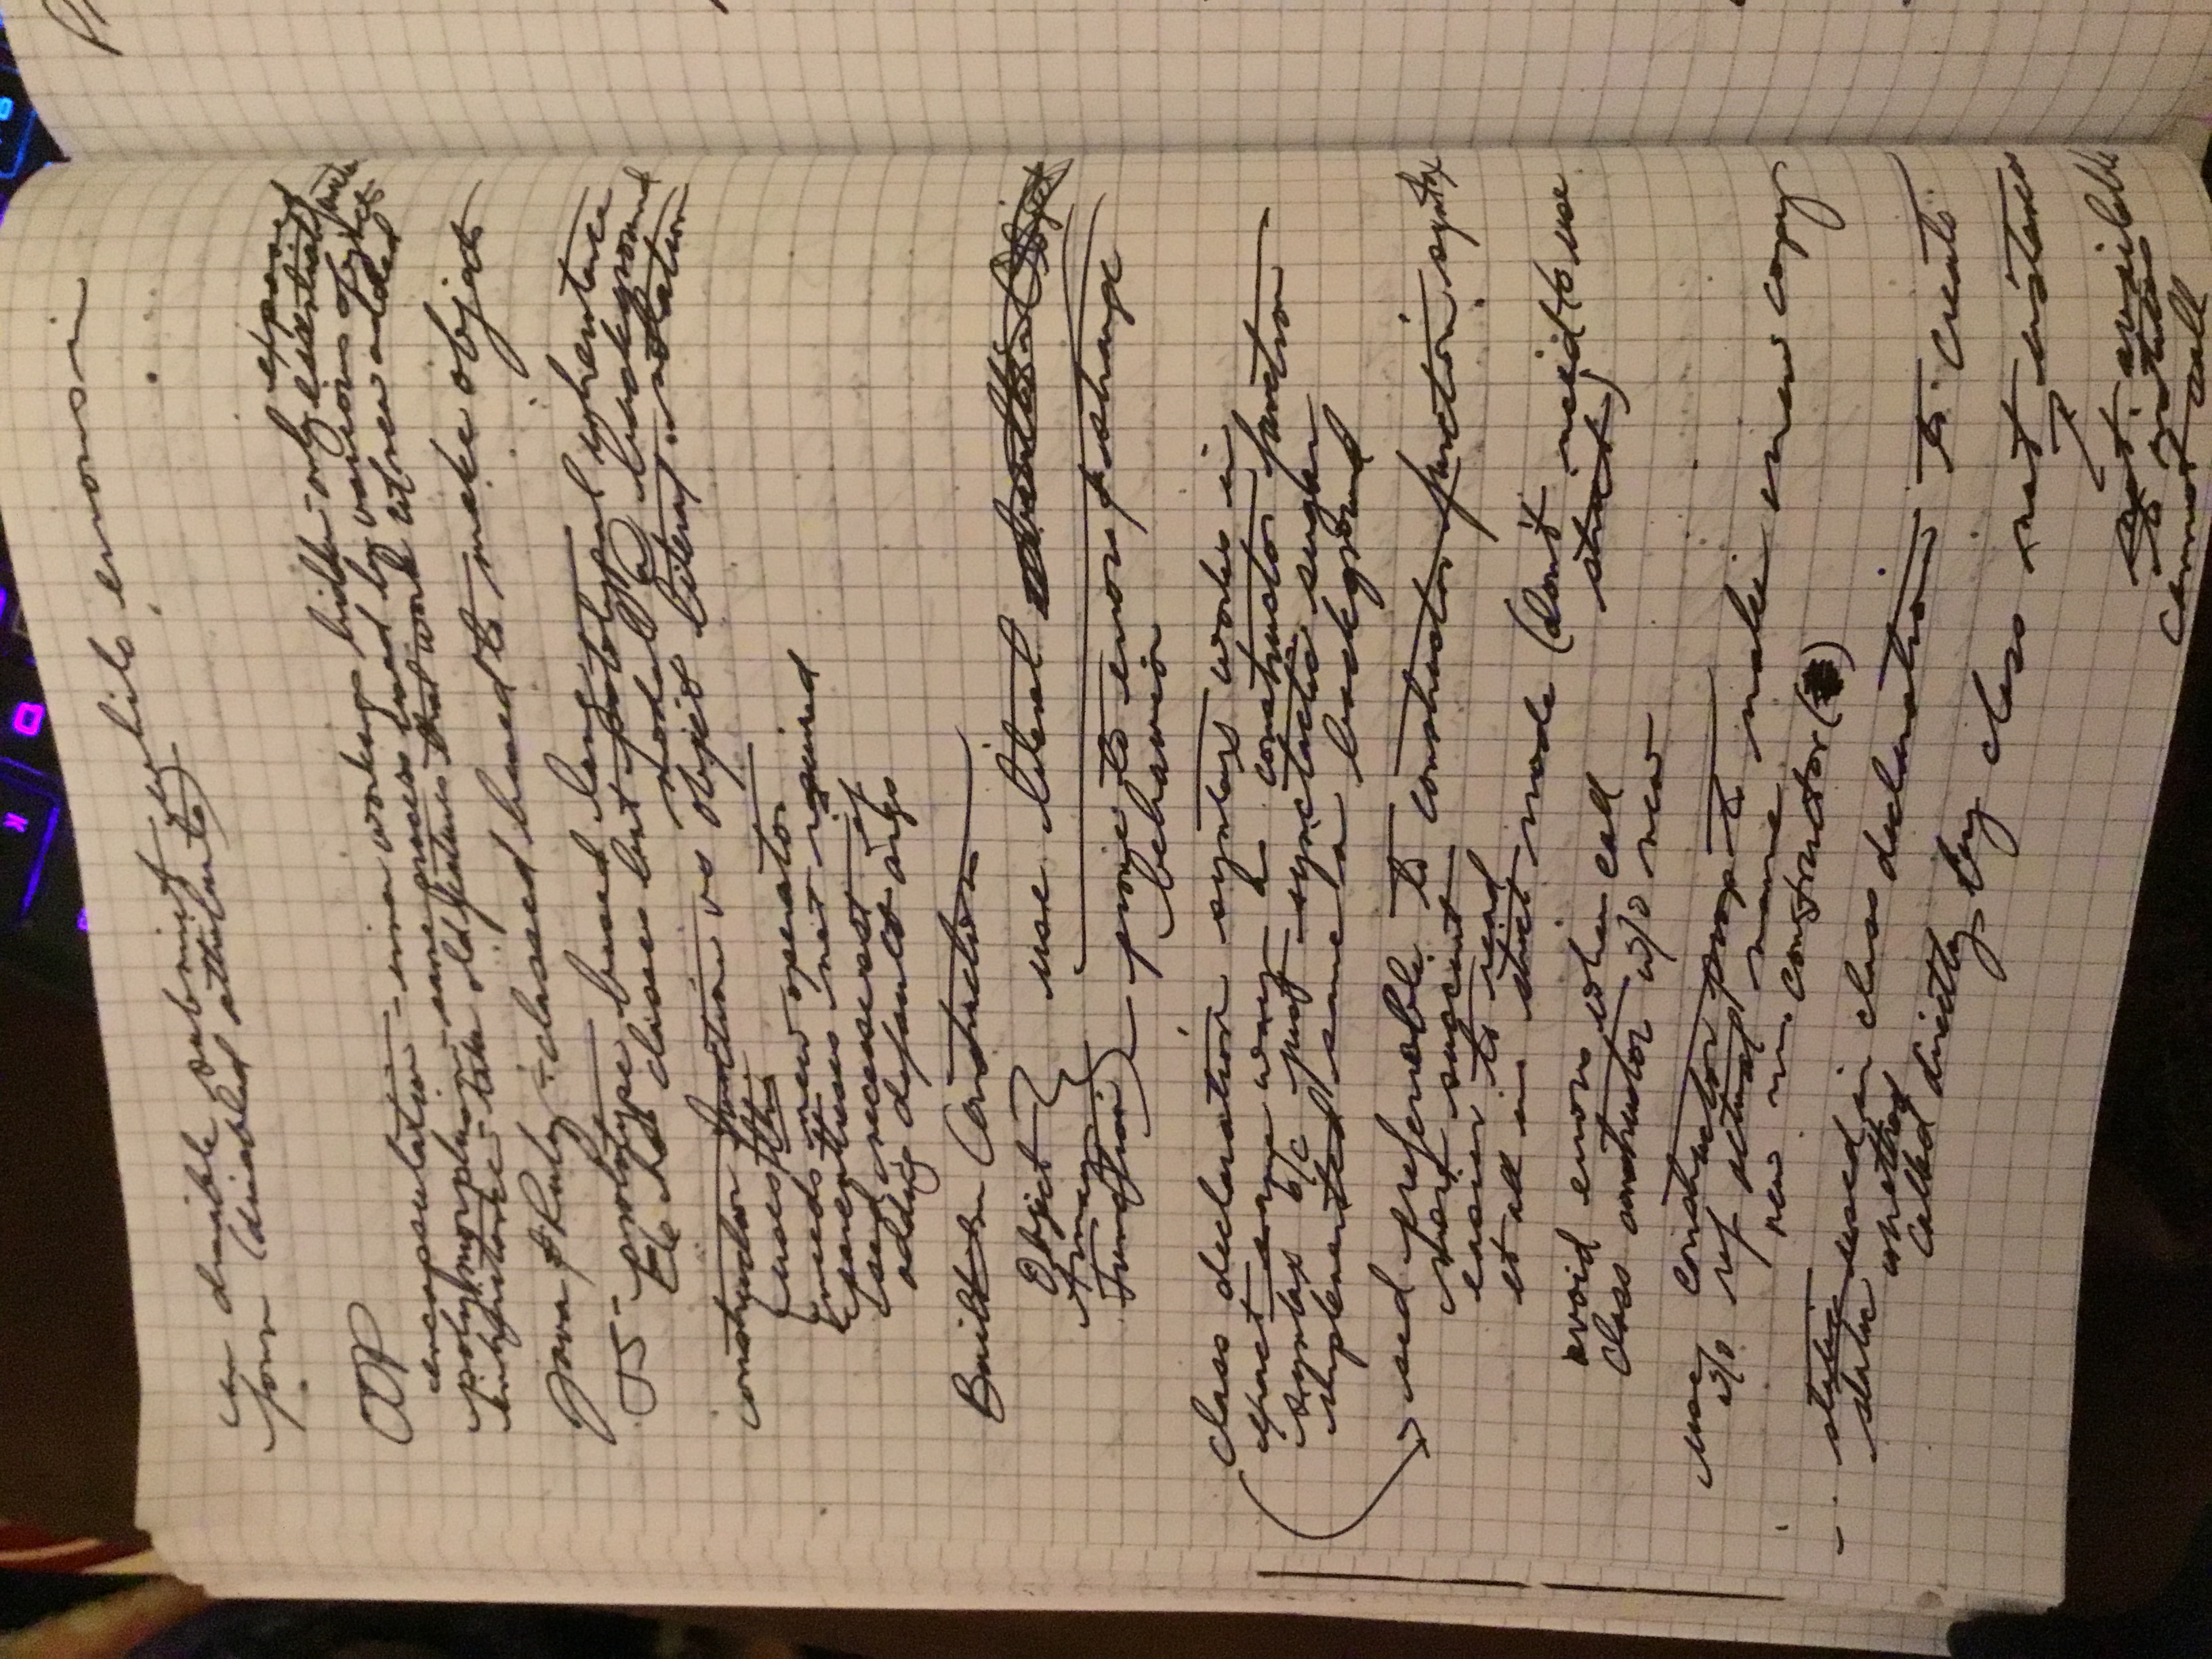 can disable submit while errors in
form (disabled attribute)
OOP
exposed
encapsulation - inner workings hidden - only essential
polymorphism - same process used by various objects
inheritance - take old features that work w/ new added
Java & Ruby - classed based to make objects
JS - prototype based lang
E6 has classes but prototypal inheritance
model @ background
constructor function vs object literal notation
uses this
needs new operator
parentheses not required
and necessary if
adding default args
Built In Constructors
Object
Array
Function
use literal
prone to errors & strange
behavior
class declaration syntax works in
exact same way as constructor function
syntax b/c just synctactic sugar
implemented same in background
and preferrable to constructor function syntax
more succint
easier to read
et all in strict mode (don't need to use
strict)
avoid errors when call
class constructor w/o new
use constructor prop to make new copy
w/o ref actual name
new constructor()
static used in class declaration to create
static method
called directly by class not instance
not available
to instances
cannot call
P